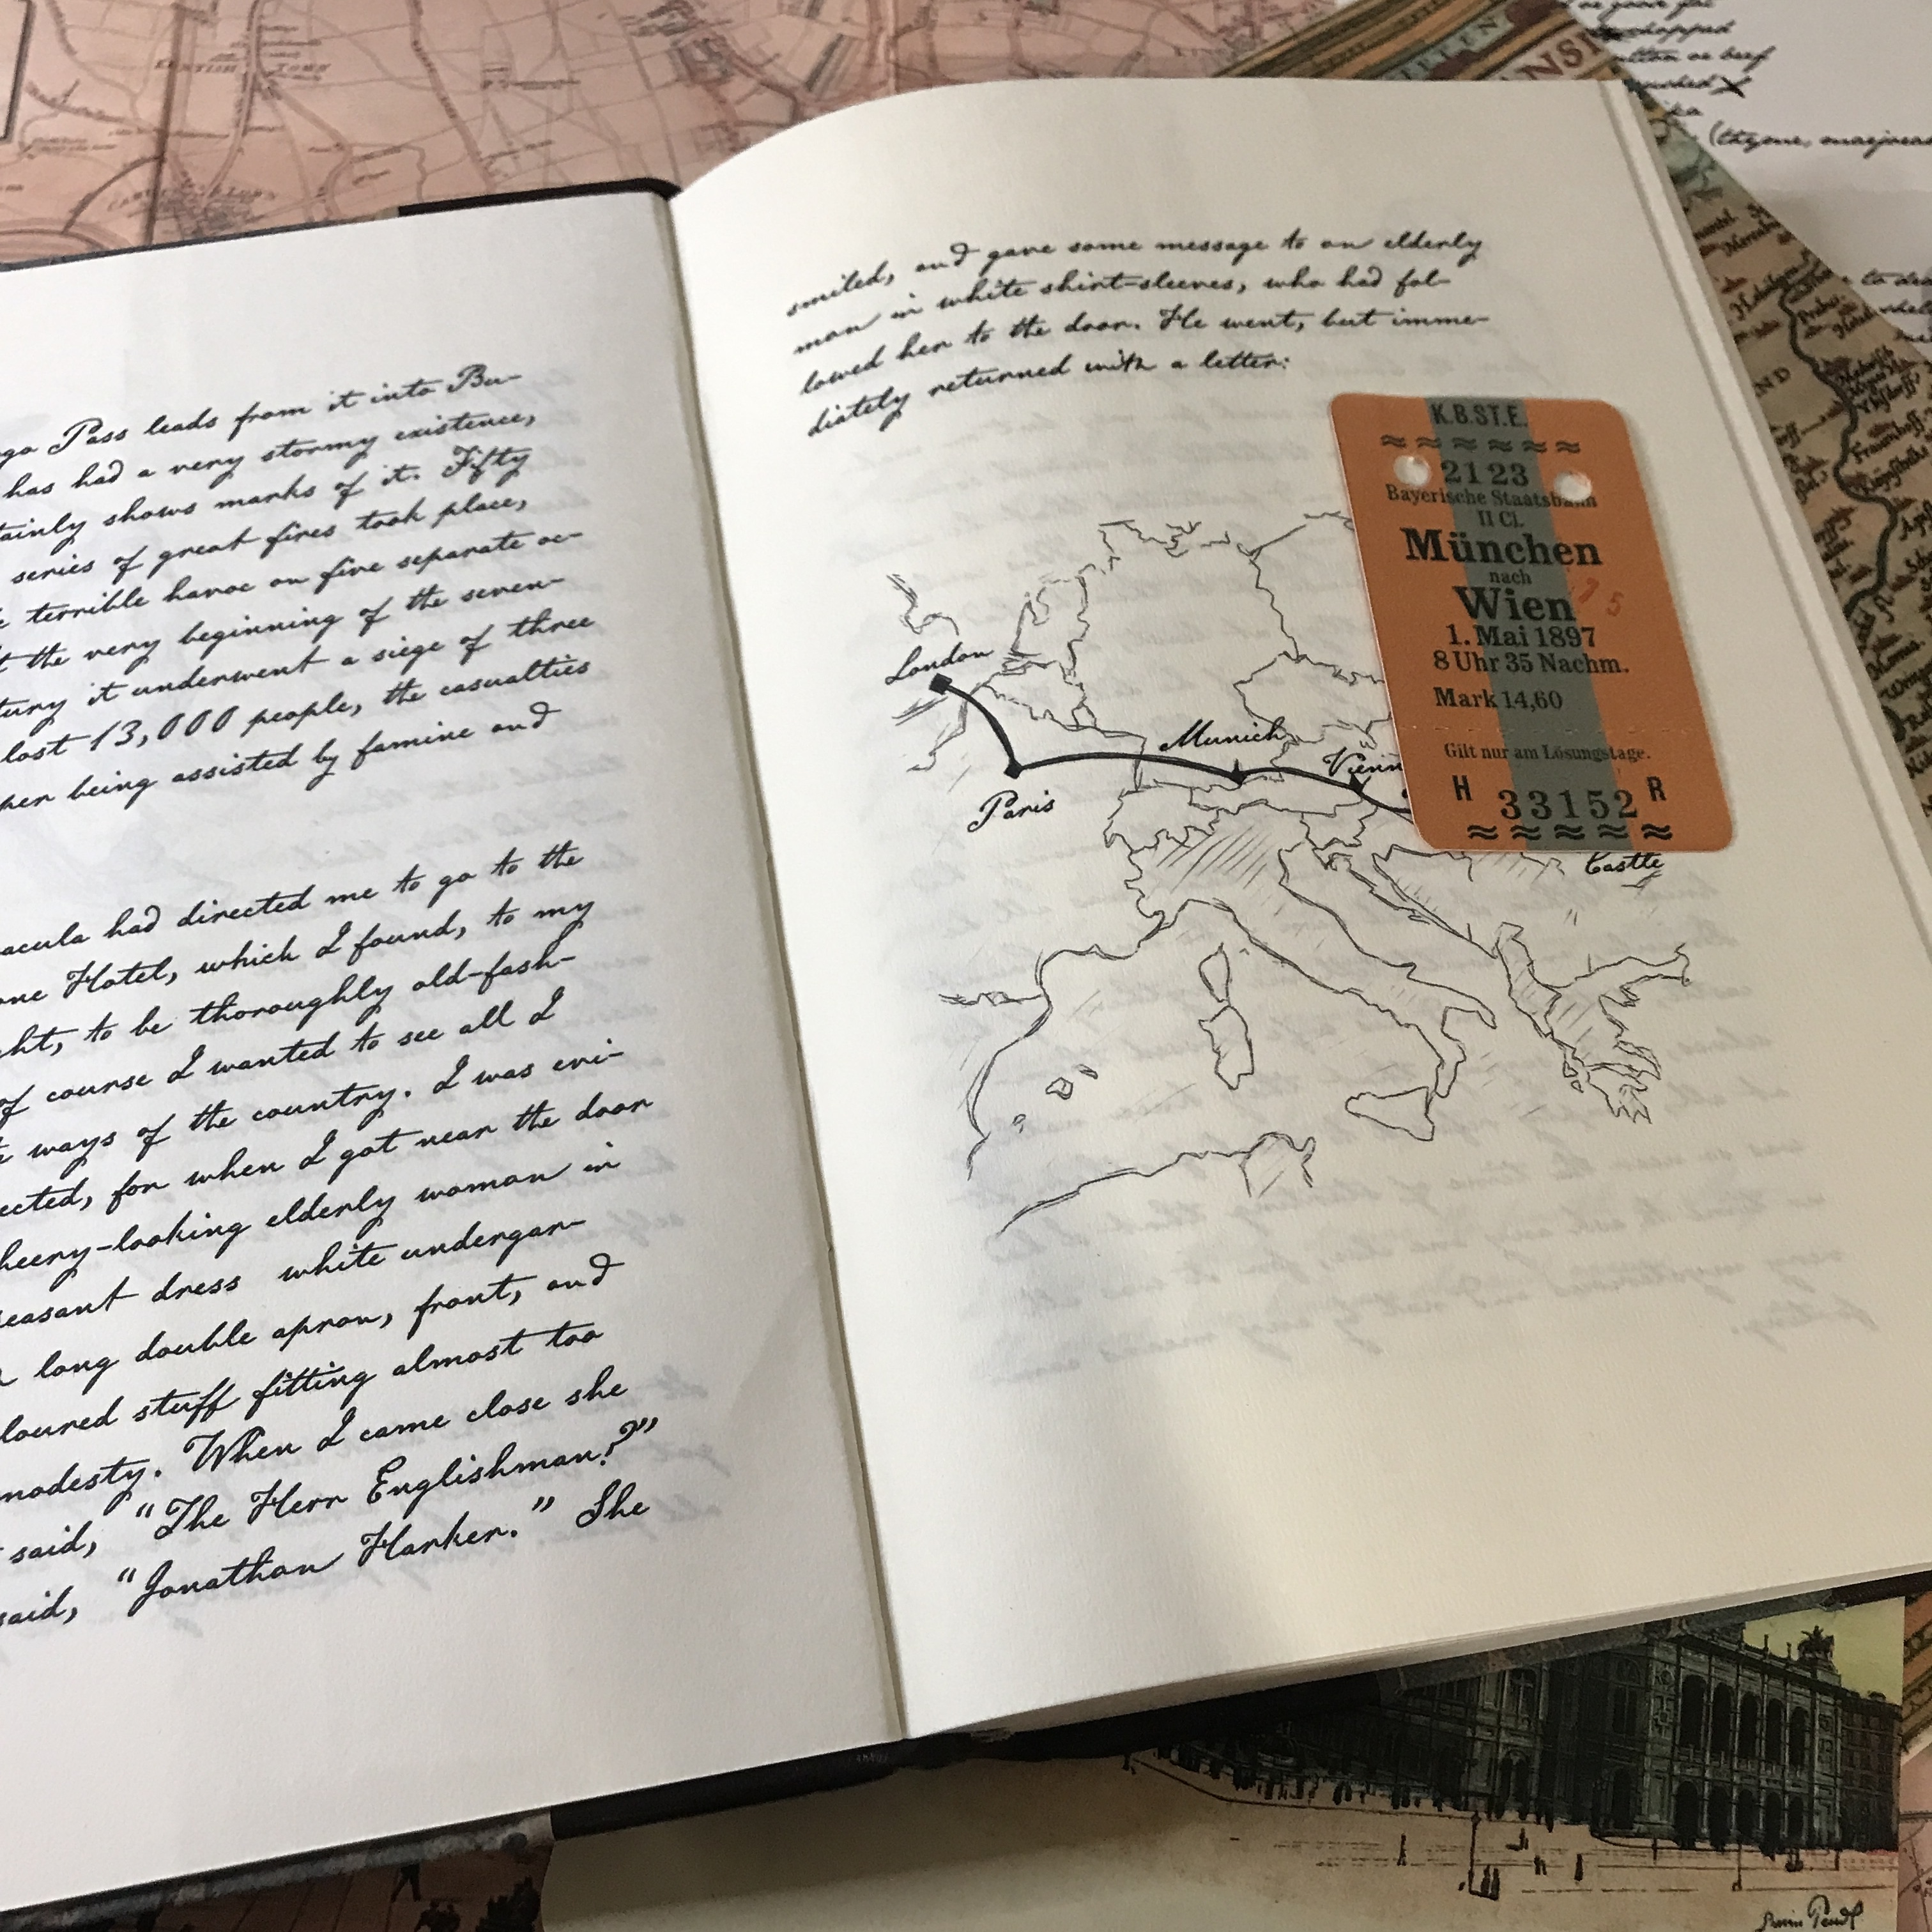 go Pass leads from it into Bu-
has had a very stormy existence,
tainly shows marks of it. Fifty
series of great fires took place,
terrible havoc on five separate oc-
t the very beginning of the seven-
tury it underwent a siege of three
lost 13,000 people, the casualties
per being assisted by famine and
acula had directed me to go to the
one Hotel, which I found, to my
ght, to be thoroughly old-fash-
of course I wanted to see all I
ways of the country. I was evi-
ected, for when I got near the door
heery-looking elderly woman in
easant dress white undergar-
long double apron, front, and
loured stuff fitting almost too
modesty. When I came close she
said, "The Herr Englishman?"
said, "Jonathan Harker." She
smiled, and gave some message to an elderly
man in white shirt-sleeves, who had fol-
lowed her to the door. He went, but imme-
diately returned with a letter:
K.B.ST.E.
≈ ≈ ≈ ≈ ≈ ≈
21 23
Bayerische Staatsbahn
II Cl.
München
nach
Wien
75
1. Mai 1897
8 Uhr 35 Nachm.
Mark 14,60
Gilt nur am Lösungstage.
H 33152 R
≈ ≈ ≈ ≈ ≈
London
Paris
Munich
Vienn
Castle
KENTISH TOWN
CAMDEN TOWN
chopped
mutton or beef
(thyme, marjoram